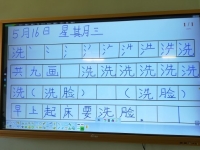 5月16日 星其月三
洗 丶 冫 氵 氵 洗
共九画 洗洗洗洗洗
洗(洗脸) (洗脸)
早上起床要洗脸。